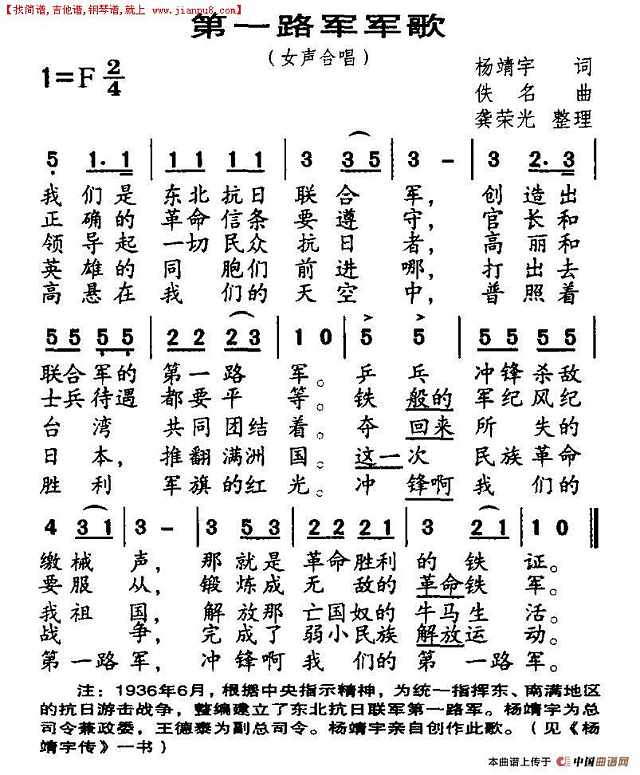 【找简谱,吉他谱,钢琴谱,就上 www.jianpu8.com】
第一路军军歌
（女声合唱）
1=F 2/4
杨靖宇 词
佚名 曲
龚荣光 整理
5 1·1 | 1 1 1 1 | 3 3 5 | 3 - | 3 2·3 |
我们是东北抗日联合军，创造出
正确的革命信条要遵守，官长和
领导起一切民众抗日者，高丽和
英雄的同胞们前进哪，打出去
高悬在我们的天空中，普照着
5 5 5 5 | 2 2 2 3 | 1 0 | 5 5 | 5 5 5 5 |
联合军的第一路军。乒乓冲锋杀敌
士兵待遇都要平等。铁般的军纪风纪
台湾共同团结着。夺回来所失的
日本，推翻满洲国。这一次民族革命
胜利军旗的红光。冲锋啊我们的
4 3 1 | 3 - | 5·5 5 3 | 2 2 2 1 | 3 2 1 | 1 0 ‖
缴械声，那就是革命胜利的铁证。
要服从，锻炼成无敌的革命铁军。
我祖国，解放那亡国奴的牛马生活。
战争，完成了弱小民族解放运动。
第一路军，冲锋啊我们的第一路军。
注：1936年6月，根据中央指示精神，为统一指挥东、南满地区
的抗日游击战争，整编建立了东北抗日联军第一路军。杨靖宇为总
司令兼政委，王德泰为副总司令。杨靖宇亲自创作此歌。（见《杨
靖宇传》一书）
本曲谱上传于 中国曲谱网